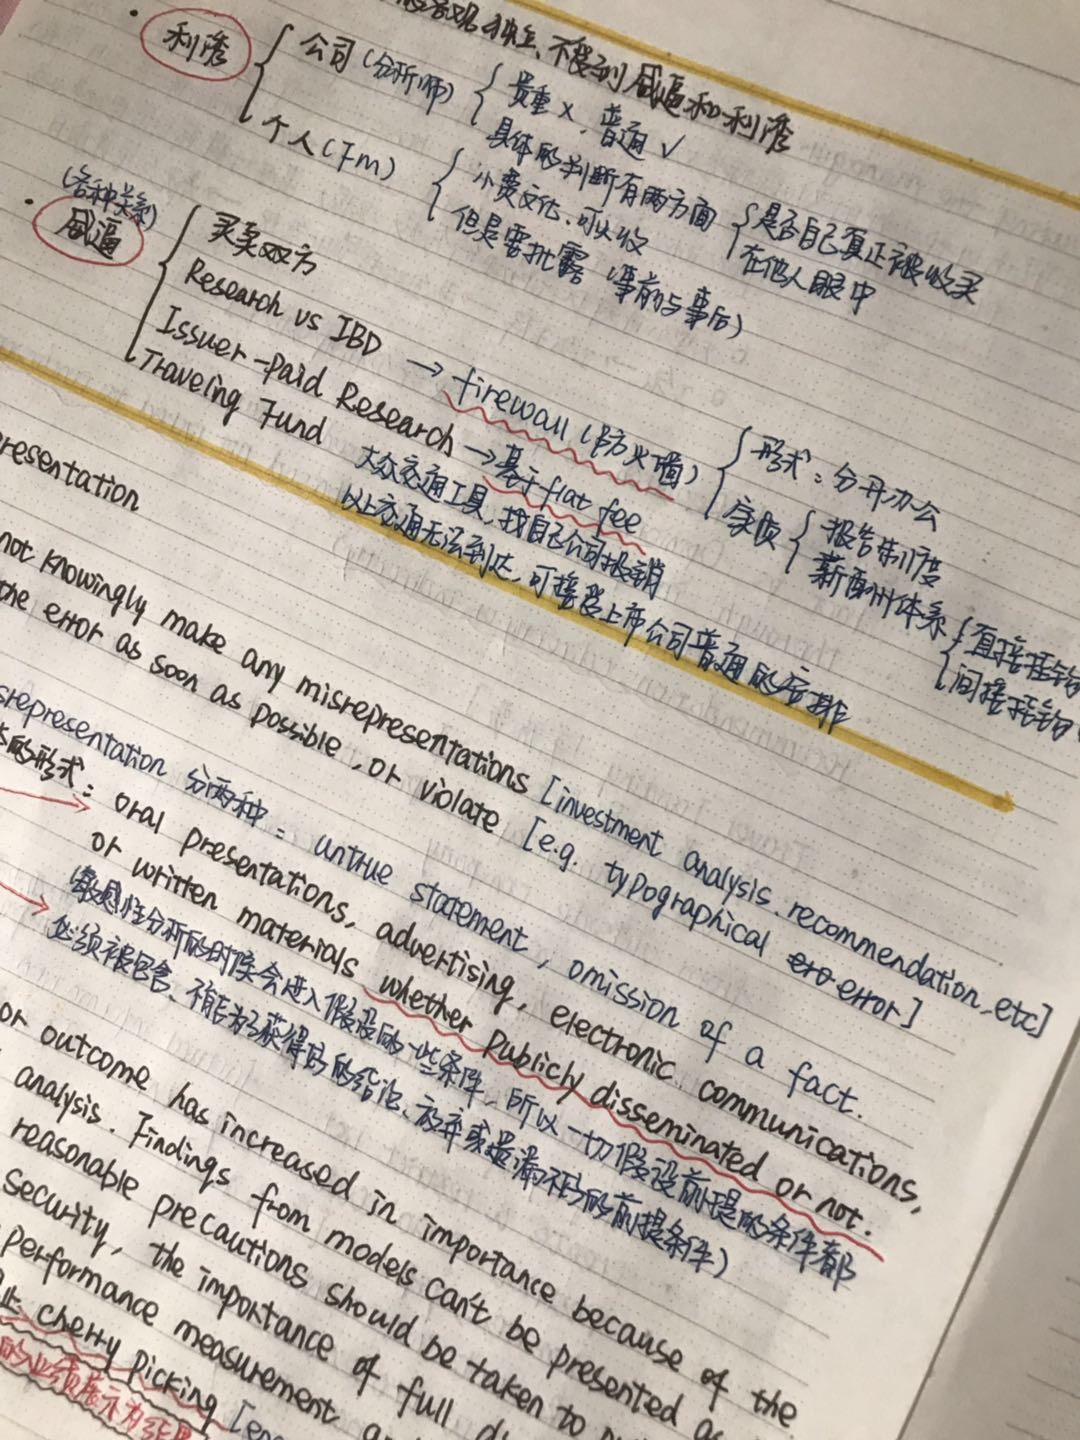 独立、不受到威逼和利诱
利诱 公司(分析师) 贵重 x 普通 √
具体的判断有两方面 是否自己真正被收买
在他人眼中
个人(Fm) 小费文化、可以收
但是需批露(事前与事后)
(各种关系)
威逼 买卖双方
Research vs IBD → firewall (防火墙) 形式:分开办公
实质 报告制度
薪酬体系 直接挂钩
间接挂钩
Issuer-paid Research → 基于flat fee
Traveling Fund 大众交通工具,找自己公司报销
以上交通无法到达,可接受上市公司普通的安排
presentation
not knowingly make any misrepresentations [investment analysis. recommendation, etc]
the error as soon as possible, or violate [e.g. typographical ero error]
srepresentation 分两种: untrue statement, omission of a fact.
的形式: oral presentations, advertising, electronic communications,
or written materials whether publicly disseminated or not.
敏感性分析的时候会进入假设的一些条件,所以一切假设前提的条件都
必须被包含、不能为了获得好的结论、放弃或遗漏不好的前提条件)
or outcome has increased in importance because of the
analysis. Findings from models can't be presented as
reasonable precautions should be taken to
security, the importance of full
performance measurement
止 cherry picking
的业绩展示为